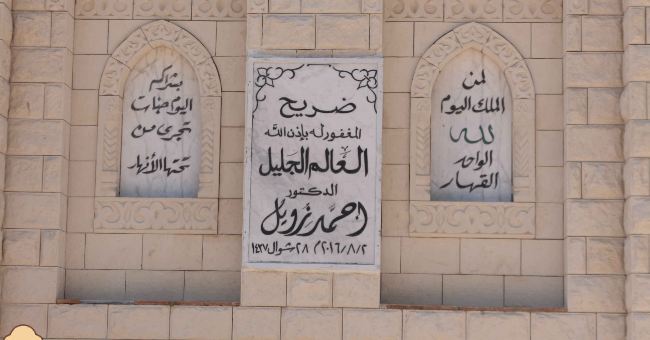 لمن
الملك اليوم
لله
الواحد
القهار
ضريح
المغفور له بإذن الله
العالم الجليل
الدكتور
احمد نزويل
٢٠١٦/٨/٢م ٢٨ شوال ١٤٣٧
بشراكم
اليوم جنات
تجرى من
تحتها الأنهار